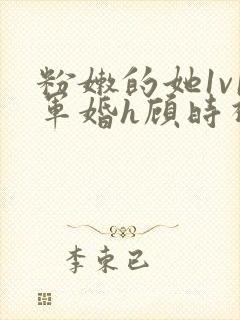 粉嫩的她1v1
军婚h顾时
李束已